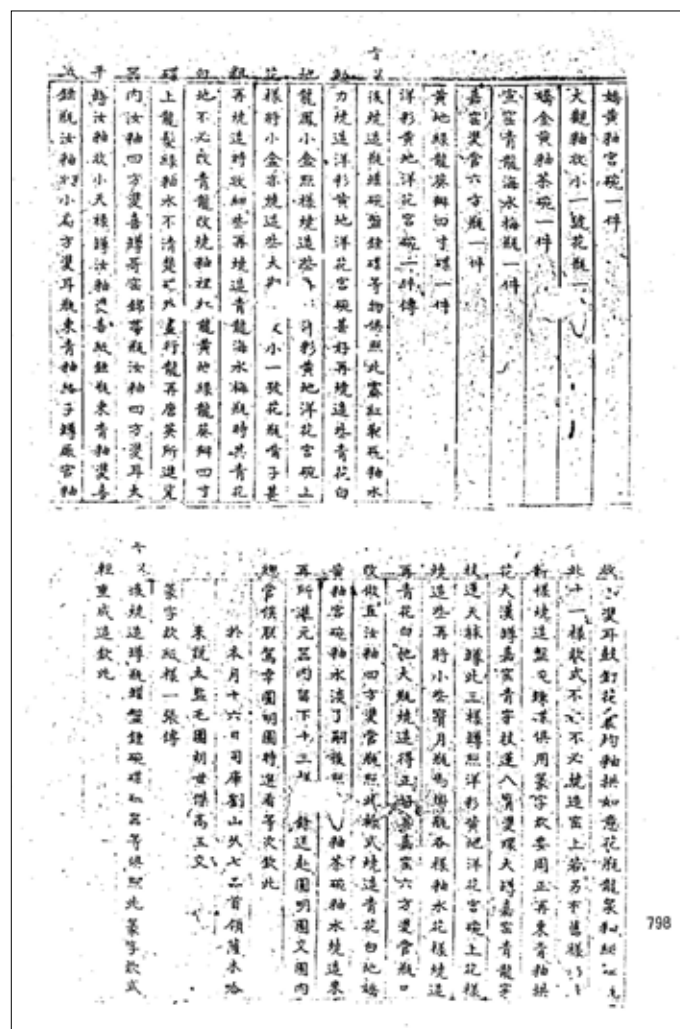 嬌黃釉宮碗一件
大觀釉收小一號花瓶一
嬌金黃釉茶碗一件
宣窑青龍海水梅瓶一件
嘉窑雙管六方瓶一件
黃地綠龍葵瓣四寸碟一件
洋彩黃地洋花宮碗一件傳
後燒造瓶罐碗盤鍾碟等物俱照此霽紅 瓶釉水
勉力燒造洋彩黃地洋花宮碗甚好再燒造些青花白
地龍鳳小盒照樣燒造些 洋彩黃地洋花宮碗上
花樣將小盒亦燒造些大 小一號花瓶嘴子甚
粗再燒造時收細些再燒造青龍海水梅瓶時其青花
白地不必改青龍改燒釉裡紅龍黃地綠龍葵瓣四寸
碟上龍髮綠釉水不清楚 行龍再唐英所進瓷
器內汝釉四方雙喜罇哥窑錦帶瓶汝釉四方雙耳太
平罇汝釉收小天樣罇汝釉雙喜紙鎚瓶東青釉雙喜
鎚瓶汝釉 小扁方雙耳瓶東青釉 子罇廠官釉
收小雙耳鼓釘花 均釉拱如意花瓶龍泉
此十一樣款式不 不必燒造窑上若另有舊樣
新樣燒造盤 俱用篆字款要周正再東青釉拱
花大漢罇嘉窑青番枝蓮八寶雙環大罇嘉窑青龍穿
枝蓮天球罇此三樣罇照洋彩黃地洋花宮碗上花樣
燒造些再將小些寶月瓶馬掛瓶各樣釉水花樣燒造
再青花白地天瓶燒造得正好要嘉窑六方雙管瓶口
改做直汝釉四方雙管瓶照此款式燒造青花白地嬌
黃釉宮碗釉水淡了嗣後照 釉茶碗釉水燒造
再所進元器內留下十三 餘送赴圓明園交園內
總管俟朕駕幸圓明園時進看等次欽此
於本月十六日司庫劉山久七品首領薩木哈
來說太監毛團胡世傑高玉交
篆字款紙樣一張傳
後燒造罇瓶罐盤鍾碗碟 器等俱照此篆字款式
輕重成造欽此
798